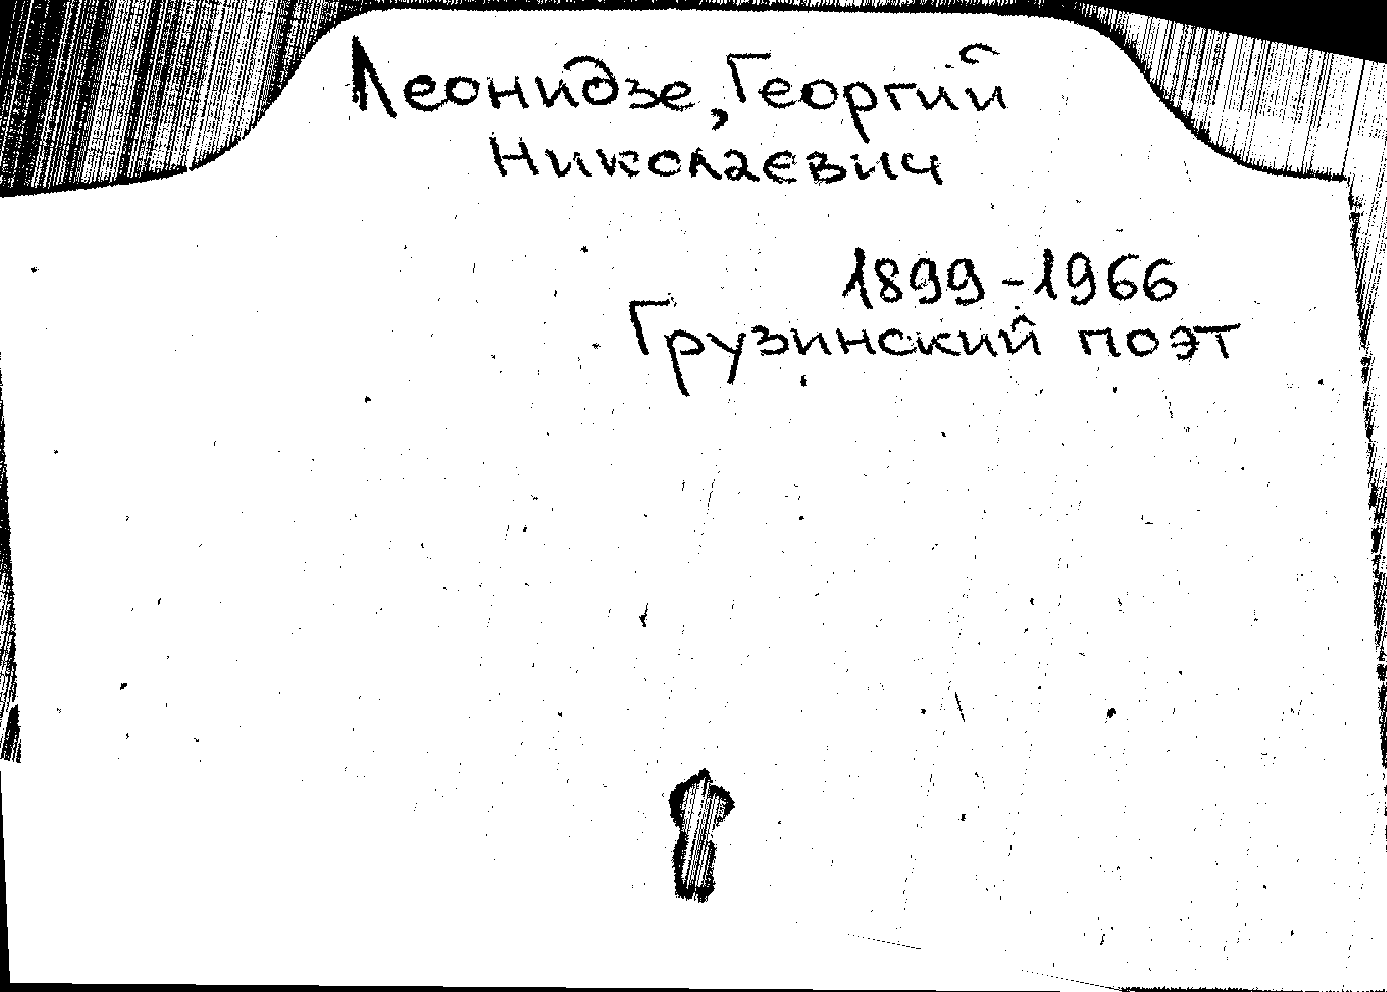 Леонидзе, Георгий
Николаевич
1899-1966
Грузинский поэт